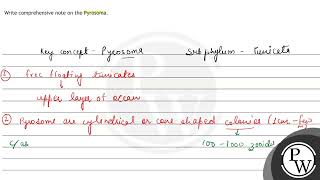 Write comprehensive note on the Pyrosoma.
Key concept - Pyrosoma Subphylum - Tunicata
① free floating tunicates
upper layer of ocean
② Pyrosome are cylindrical or cone shaped colonies (1cm - few
100 - 1000 zooids
PW